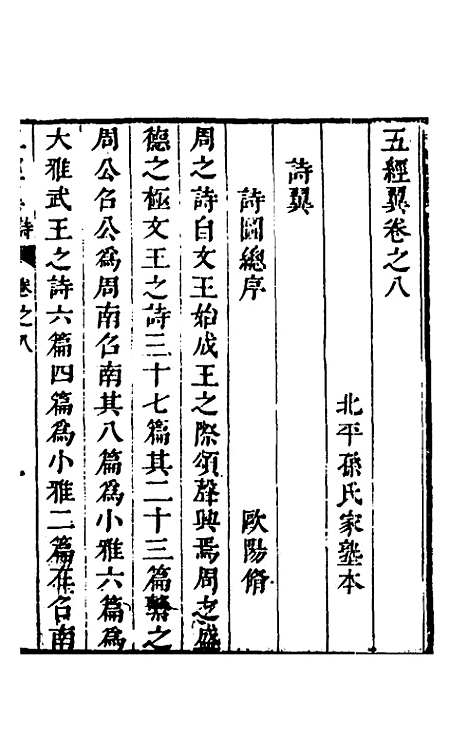 五經翼卷之八
北平孫氏家塾本
詩翼
詩圖總序　歐陽脩
周之詩自文王始成王之際頌聲興焉周之盛
德之極文王之詩三十七篇其二十三篇繫之
周公召公為周南召南其八篇為小雅六篇為
大雅武王之詩六篇四篇為小雅二篇在召南
卷之八